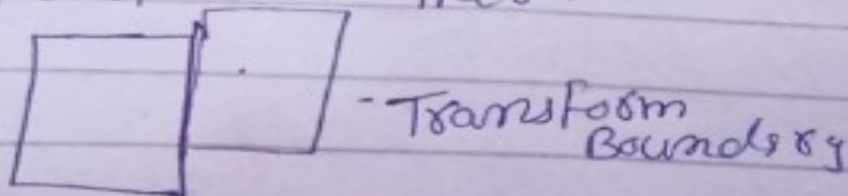 - Transform
Boundery